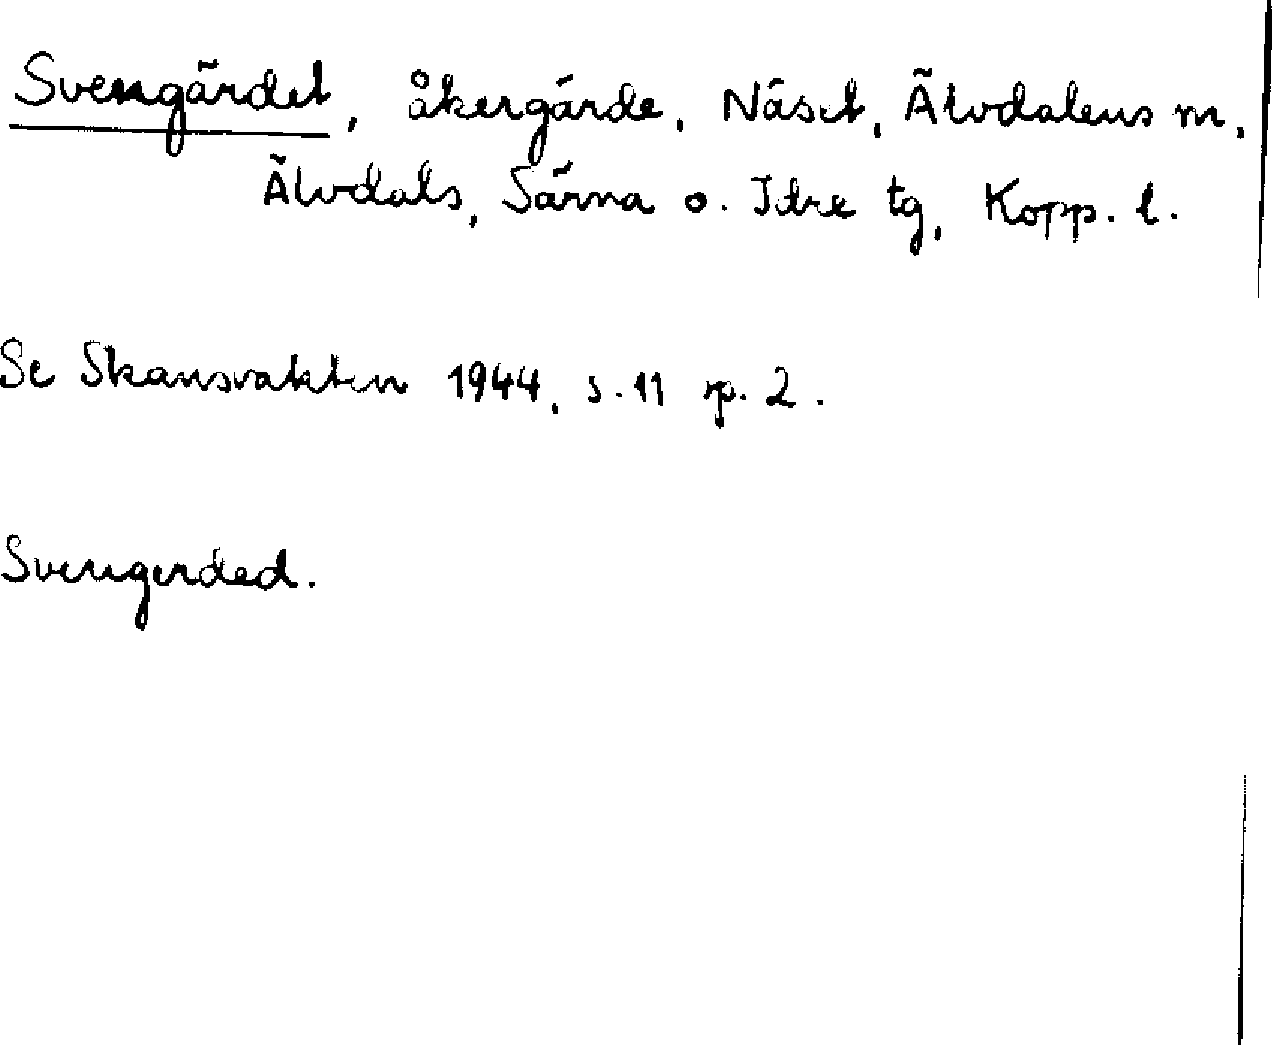 Svengärdet, åkergärde, Näset, Älvdalens m,
Älvdals, Särna o. Idre tg, Kopp. l.
Se Skansvakten 1944, s. 11 sp. 2.
Svengerded.